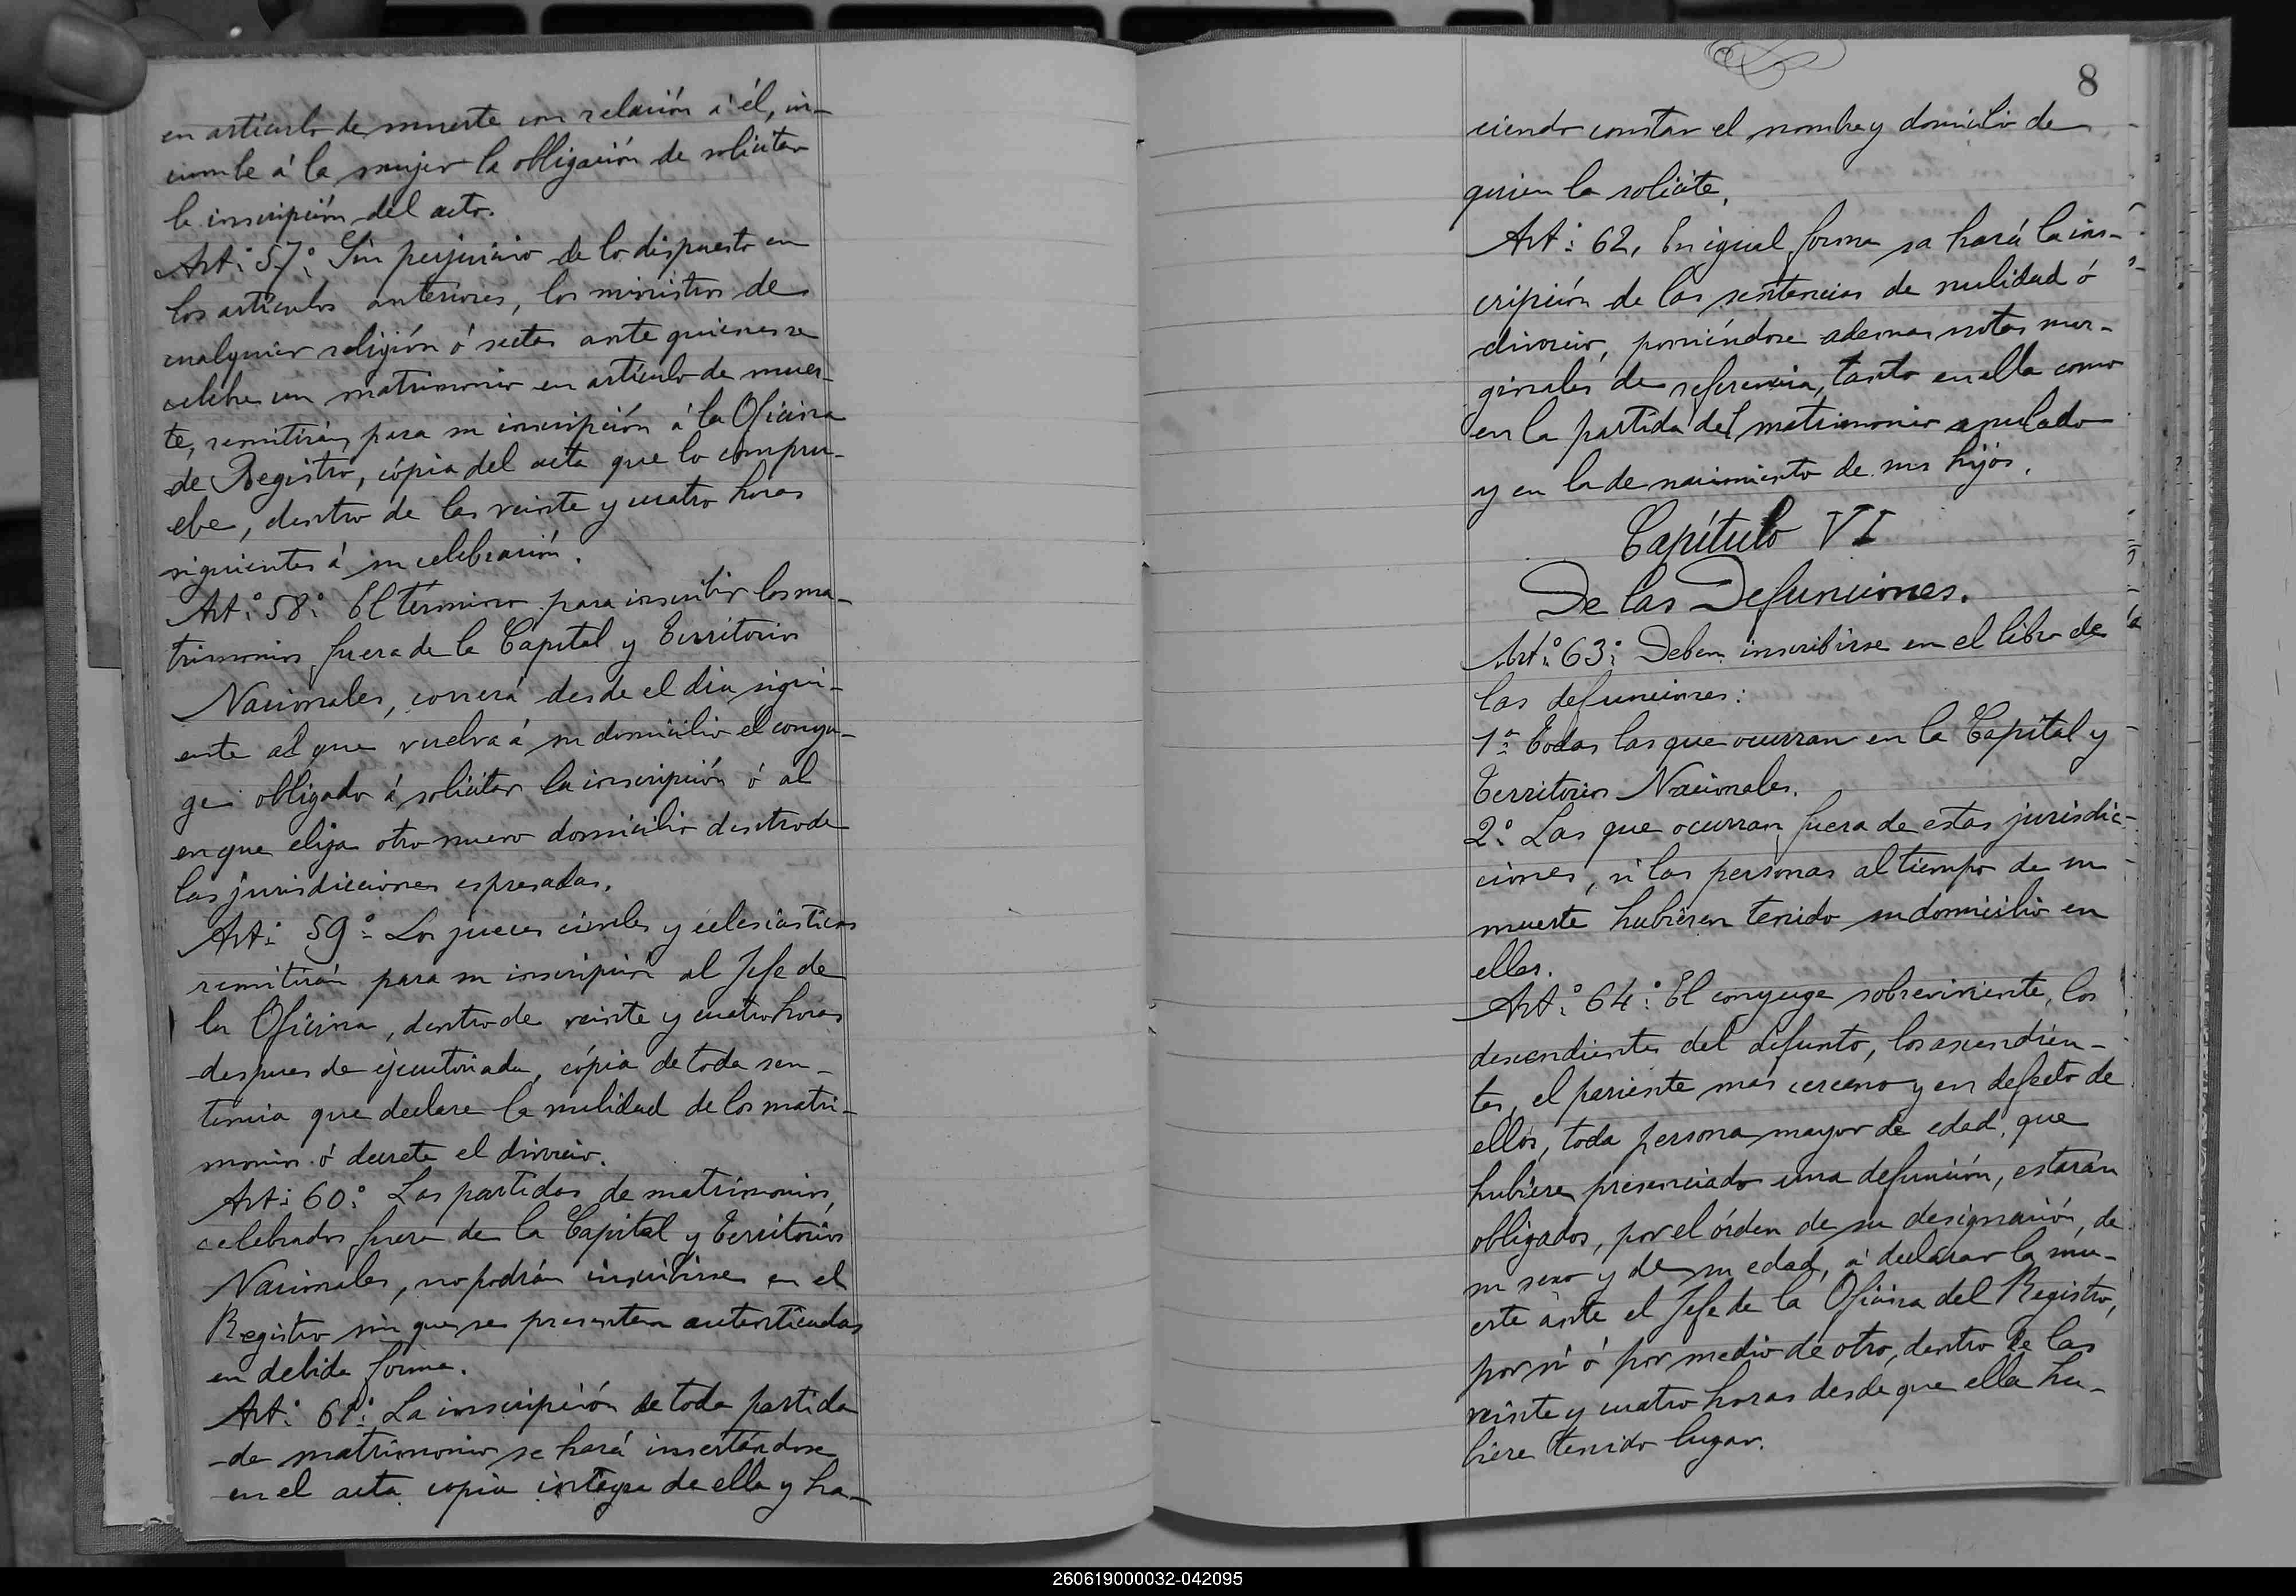 en artículo de muerte con relación á él, in-
cumbe á la mujer la obligación de solicitar
la inscripción del acto.
Art.º 57.º Sin perjuicio de lo dispuesto en
los artículos anteriores, los ministros de
cualquier religión ó secta ante quienes se
celebre un matrimonio en artículo de muer-
te, remitirán para su inscripción á la Oficina
de Registro, cópia del acta que lo comprue-
ebe, dentro de las veinte y cuatro horas
siguientes á su celebración.
Art.º 58.º El término para inscribir los ma-
trimonios fuera de la Capital y Territorios
Nacionales, correrá desde el dia sigui-
ente al que vuelva á su domicilio el conyu-
ge obligado á solicitar la inscripción ó al
en que elija otro nuevo domicilio dentro de
las jurisdicciones espresadas.
Art.º 59.º Los jueces civiles y eclesiásticos
remitirán para su inscripción al Jefe de
la Oficina, dentro de veinte y cuatro horas
despues de ejecutoriada, cópia de toda sen-
tencia que declare la nulidad de los matri-
monios ó decrete el divorcio.
Art.º 60.º Las partidas de matrimonios,
celebrados fuera de la Capital y Territorios
Nacionales, no podrán inscribirse en el
Registro sin que se presenten autenticadas
en debida forma.
Art.º 61.º La inscripción de toda partida
de matrimonio se hará insertándose
en el acta copia íntegra de ella y ha-
8
ciendo constar el nombre y domicilio de
quien la solicite.
Art.º 62. En igual forma sa hará la ins-
cripción de las sentencias de nulidad ó
divorcio, poniéndose ademas notas mar-
ginales de referencia, tanto en ella como
en la partida del matrimonio anulado
y en la de nacimiento de sus hijos.
Capítulo VI
De las Defunciones.
Art.º 63.º Deben inscribirse en el libro de
las defunciones:
1.º Todas las que ocurran en la Capital y
Territorios Nacionales.
2.º Las que ocurran fuera de estas jurisdic-
ciones, si las personas al tiempo de su
muerte hubieren tenido su domicilio en
ellas.
Art.º 64.º El conyuge sobreviviente, los
descendientes del difunto, los ascendien-
tes, el pariente mas cercano y en defecto de
ellos, toda persona mayor de edad, que
hubiere presenciado una defunción, estarán
obligados, por el órden de su designación, de
su sexo y de su edad, á declarar la mu-
erte ante el Jefe de la Oficina del Registro,
por sí ó por medio de otro, dentro de las
veinte y cuatro horas desde que ella hu-
biere tenido lugar.
260619000032-042095